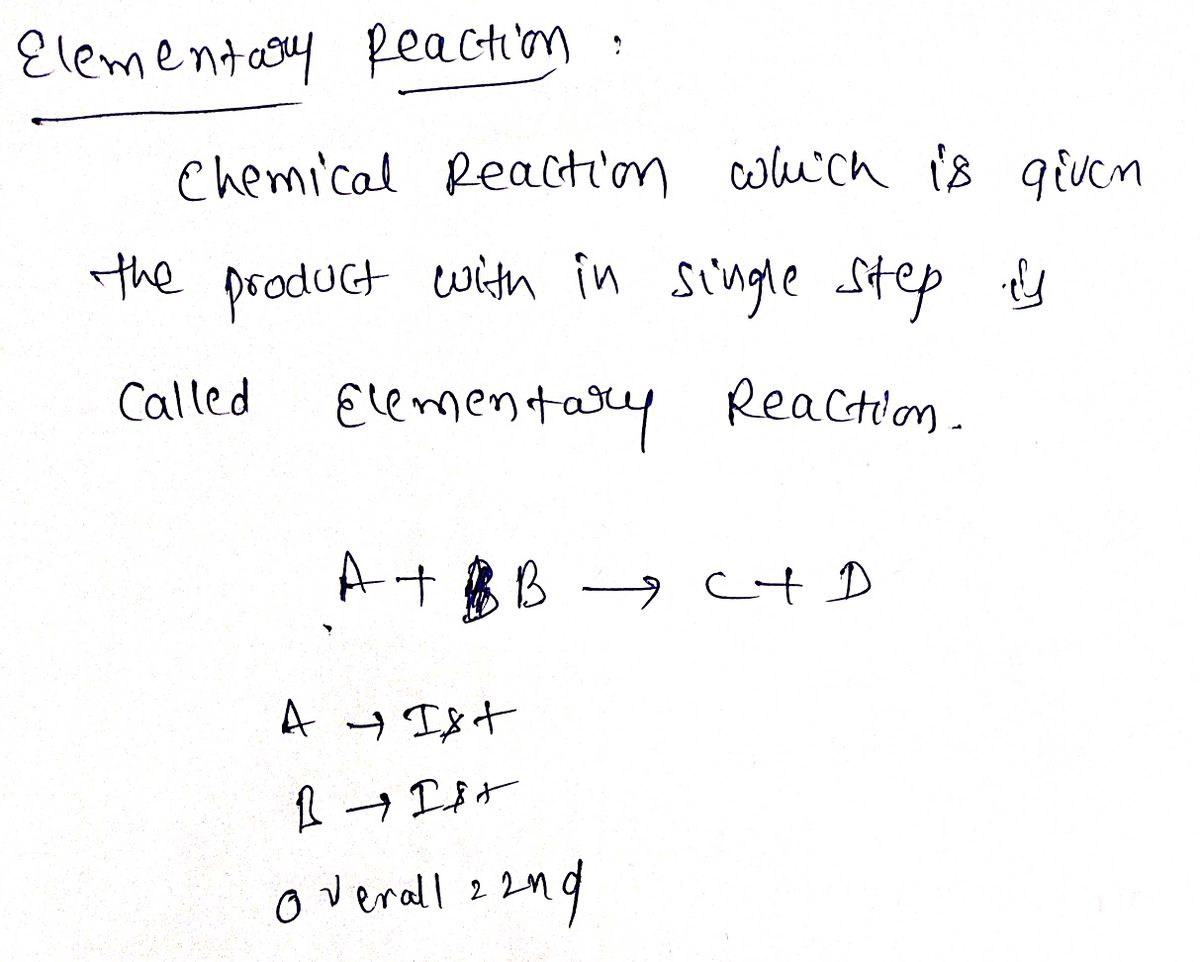 Elementary Reaction :
Chemical Reaction which is given
the product with in single step is
Called Elementary Reaction.
A + B → C + D
A → Ist
B → Ist
Overall = 2nd